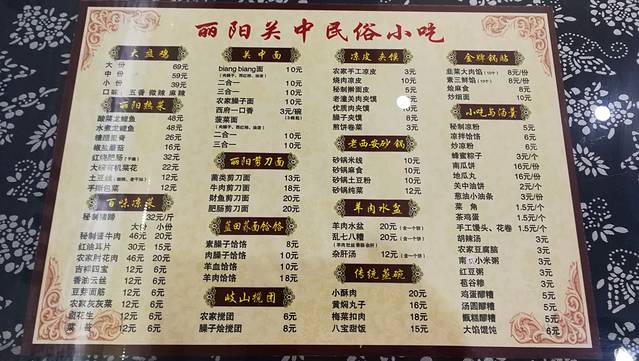 丽阳关中民俗小吃
大盘鸡
大 份 69元
中 份 59元
小 份 39元
口味: 五香 微辣 麻辣
丽阳热菜
酸菜龙鲤鱼 48元
水煮龙鲤鱼 48元
26元
26元
红烧肥肠 48元
大碗有机菜花 22元
土豆丝 12元
手撕包菜 12元
百味凉菜
秘制猪蹄 32元/斤
大份 小份
秘制酱牛肉 46元 20元
红油耳片 30元 15元
农家肘花肉 46元 20元
吉祥四宝 12元 6元
香油云丝 12元 6元
豆芽面筋 12元 6元
农家灰灰菜 12元 6元
花生 12元 6元
12元 6元
关中面
biang biang面 10元
一合一 10元
二合一 10元
三合一 10元
农家臊子面 10元
西府一口香 3元/碗
菠菜面 10元
二合一 10元
三合一 10元
丽阳剪刀面
菌类剪刀面 13元
牛肉剪刀面 18元
财鱼剪刀面 20元
肥肠剪刀面 20元
蓝田荞面饸饹
素臊子饸饹 8元
肉臊子饸饹 10元
羊血饸饹 10元
羊肉饸饹 18元
岐山搅团
农家搅团 6元
臊子烩搅团 8元
凉皮 夹馍
农家手工凉皮 3元
烧肉凉皮 10元
秘制擀面皮 5元
老潼关肉夹馍 8元
优质肉夹馍 10元
臊子夹馍 8元
煎饼卷菜 3元
老西安砂锅
砂锅米线 10元
砂锅刀削面 10元
砂锅土豆粉 10元
砂锅炖菜 12元
羊肉水盆
羊肉水盆 20元 (含一个饼)
乱七八糟 20元 (含一个饼)
杂肝汤 12元 (含一个饼)
传统蒸碗
小酥肉 20元
黄焖丸子 16元
梅菜扣肉 18元
八宝甜饭 15元
金牌锅贴
韭菜大肉馅 8元/份
素三鲜馅 8元/份
烩麻食 8元
炒细面 10元
小吃与汤羹
秘制凉粉 5元
凉拌饸饹 6元
炒凉粉 6元
蜂蜜粽子 3元/个
南瓜饼 16元/份
地瓜丸 16元/份
关中油饼 2元/个
葱油小油条 3元/份
菜 角 1.5元/个
茶鸡蛋 1.5元/个
手工馒头、花卷 1.5元/个
胡辣汤 3元
农家豆腐脑 3元
南瓜小米粥 3元
红豆粥 3元
苞谷糁 3元
鸡蛋醪糟 5元
汤圆醪糟 5元
甑糕醪糟 5元
大馅馄饨 6元